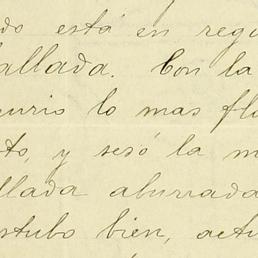 do está en regu
allada. Con la
curio lo mas flo
to, y sesó la m
llada aburrada
stubo bien, actu